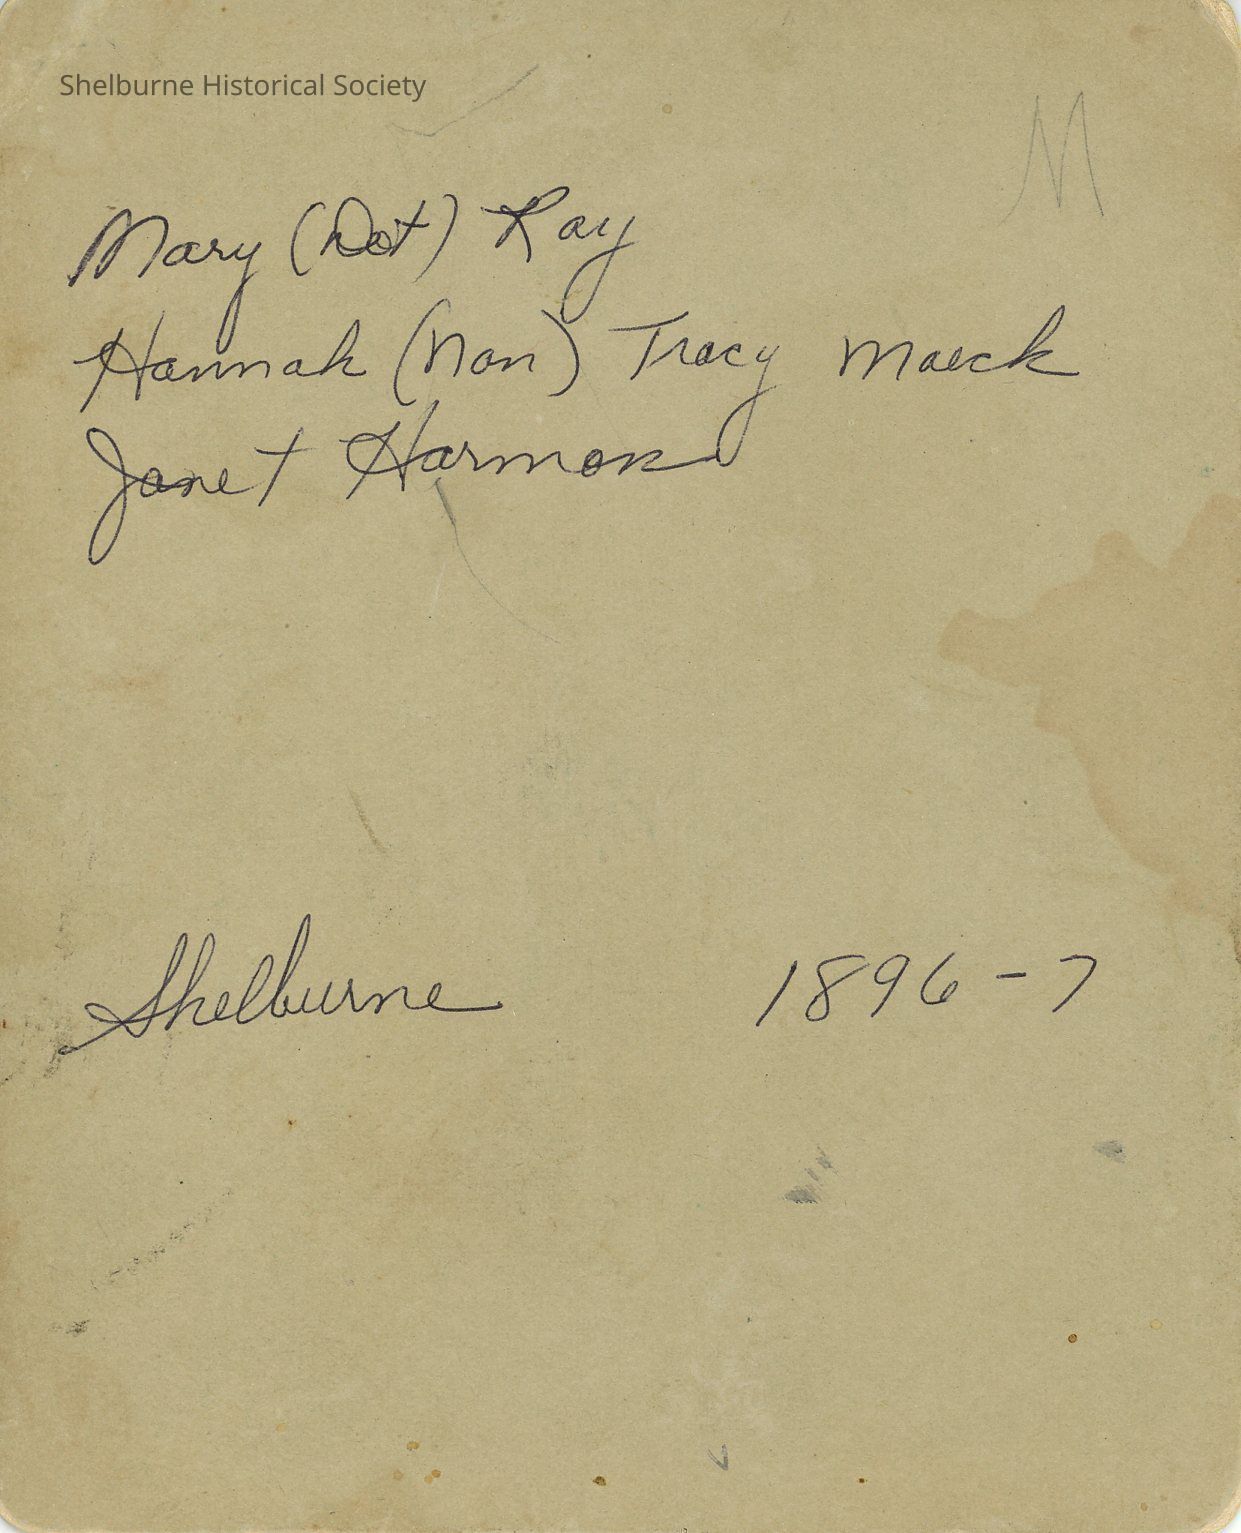 Shelburne Historical Society
M
Mary (Dot) Ray
Hannah (Nan) Tracy Maeck
Janet Harmon
Shelburne 1896-7